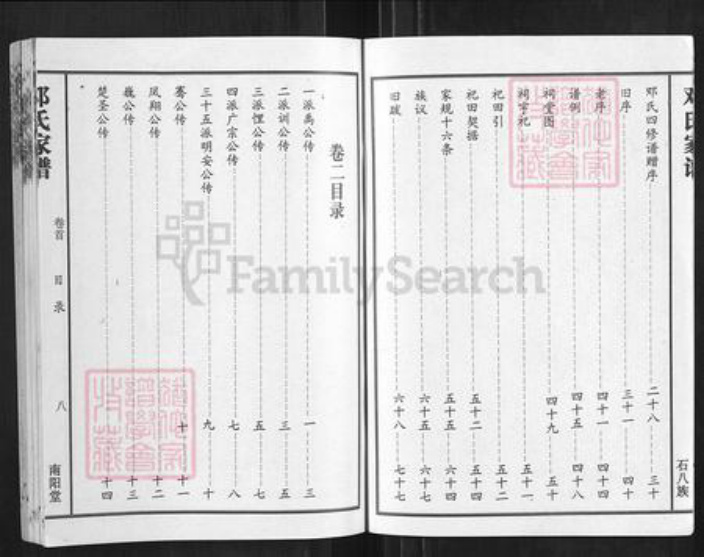 邓氏家谱
石八族
邓氏四修谱赠序 二十八 三十
旧序 三十一 四十
老序 四十一 四十四
谱例 四十五 四十八
祠堂图 四十九 五十
祠宇记 五十一
祀田引 五十二
祀田契据 五十二 五十四
家规十六条 五十五 六十四
族议 六十五 六十七
旧跋 六十八 七十七
卷二目录
一派禹公传 一 三
二派训公传 三 五
三派悝公传 五 七
四派广宗公传 七 八
三十五派明安公传 九 十
骞公传 十 十一
凤翔公传 十二
巍公传 十三
楚圣公传 十四
邓氏家谱
卷首 目录 八
南阳堂
FamilySearch